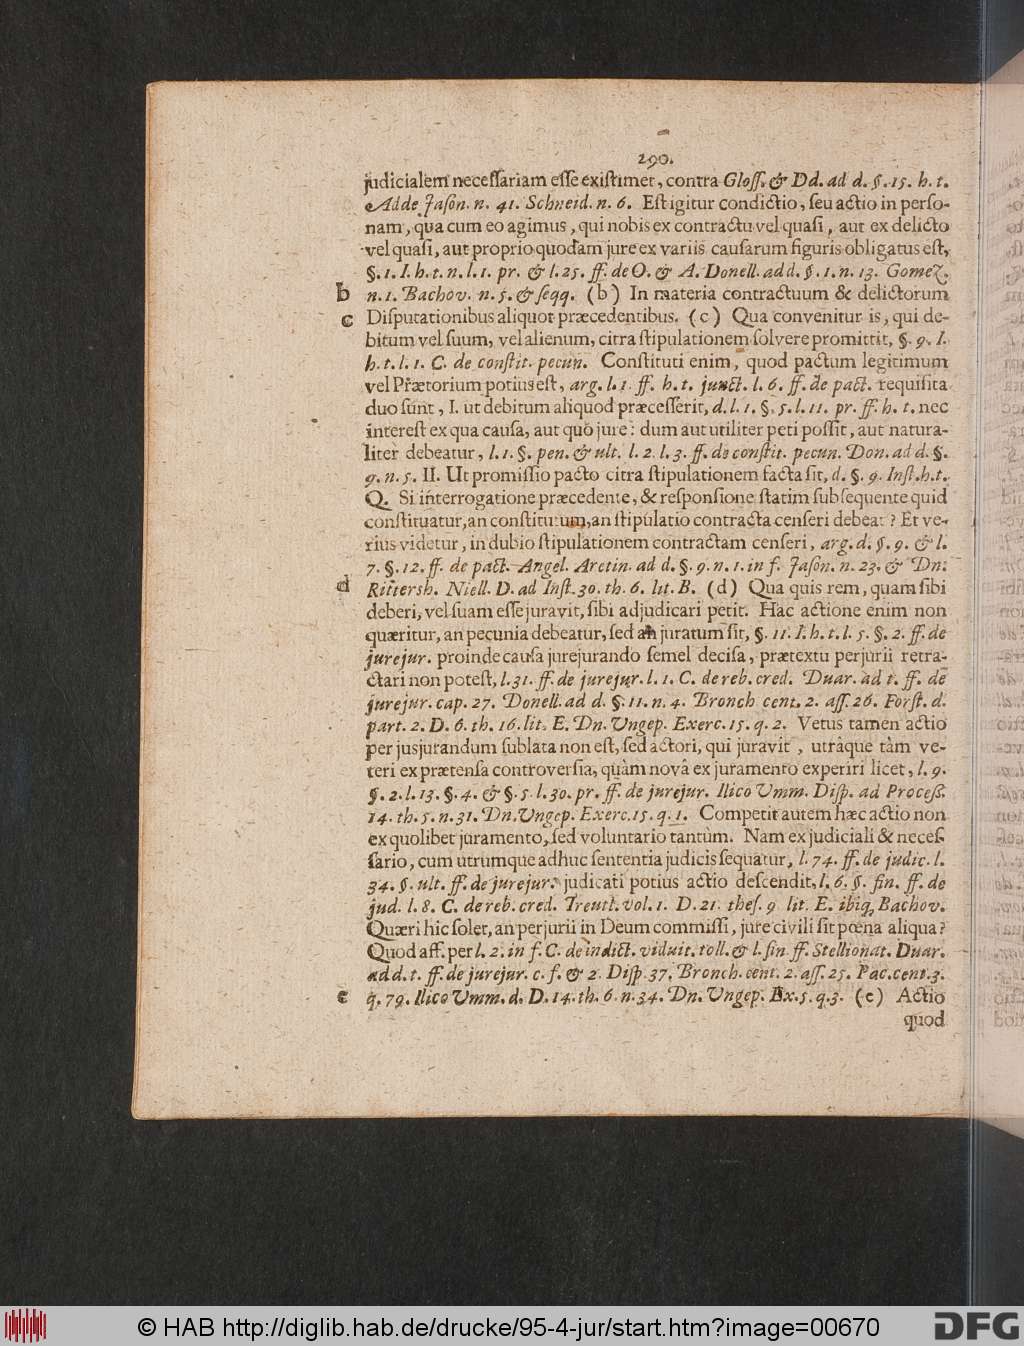 290.
judicialem necessariam esse existimet, contra Gloss. & Dd. ad d. §. 15. h. t.
Adde Jason. n. 41. Schneid. n. 6. Est igitur condictio, seu actio in perso-
nam, qua cum eo agimus, qui nobis ex contractu vel quasi, aut ex delicto
vel quasi, aut proprio quodam jure ex variis causarum figuris obligatus est,
§. 1. I. h. t. n. l. 1. pr. & l. 25. ff. de O. & A. Donell. ad d. §. 1. n. 13. Gomez.
b n. 1. Bachov. n. 5. & seqq. (b) In materia contractuum & delictorum
c Disputationibus aliquot præcedentibus. (c) Qua convenitur is, qui de-
bitum vel suum, vel alienum, citra stipulationem solvere promittit, §. 9. I.
h. t. l. 1. C. de constit. pecun. Constituti enim, quod pactum legitimum
vel Prætorium potius est, arg. l. 1. ff. h. t. junct. l. 6. ff. de pact. requisita
duo sunt, I. ut debitum aliquod præcesserit, d. l. 1. §. 5. l. 11. pr. ff. h. t. nec
interest ex qua causa, aut quo jure: dum aut utiliter peti possit, aut natura-
liter debeatur, l. 1. §. pen. & ult. l. 2. l. 3. ff. de constit. pecun. Don. ad d. §.
9. n. 5. II. Ut promissio pacto citra stipulationem facta sit, d. §. 9. Inst. h. t.
Q. Si interrogatione præcedente, & responsione statim subsequente quid
constituatur, an constitutum, an stipulatio contracta censeri debeat? Et ve-
rius videtur, in dubio stipulationem contractam censeri, arg. d. §. 9. & l.
7. §. 12. ff. de pact. Angel. Aretin. ad d. §. 9. n. 1. in f. Jason. n. 23. & Dn.
d Rittersh. Niell. D. ad Inst. 30. th. 6. lit. B. (d) Qua quis rem, quam sibi
deberi, vel suam esse juravit, sibi adjudicari petit. Hac actione enim non
quæritur, an pecunia debeatur, sed an juratum sit, §. 11. I. h. t. l. 5. §. 2. ff. de
jurejur. proinde causa jurejurando semel decisa, prætextu perjurii retra-
ctari non potest, l. 31. ff. de jurejur. l. 1. C. de reb. cred. Duar. ad t. ff. de
jurejur. cap. 27. Donell. ad d. §. 11. n. 4. Bronch cent. 2. ass. 26. Forst. d.
part. 2. D. 6. th. 16. lit. E. Dn. Ungep. Exerc. 15. q. 2. Vetus tamen actio
per jusjurandum sublata non est, sed actori, qui juravit, utrâque tàm ve-
teri ex prætensa controversia, quàm novâ ex juramento experiri licet, l. 9.
§. 2. l. 13. §. 4. & §. 5. l. 30. pr. ff. de jurejur. Ilico Umm. Disp. ad Process.
14. th. 5. n. 31. Dn. Ungep. Exerc. 15. q. 1. Competit autem hæc actio non
ex quolibet juramento, sed voluntario tantùm. Nam ex judiciali & neces-
sario, cum utrumque adhuc sententia judicis sequatur, l. 74. ff. de judic. l.
34. §. ult. ff. de jurejur. judicati potius actio descendit, l. 6. §. fin. ff. de
jud. l. 8. C. de reb. cred. Treutl. vol. 1. D. 21. thes. 9 lit. E. ibiq; Bachov.
Quæri hic solet, an perjurii in Deum commissi, jure civili sit pœna aliqua?
Quod aff. per l. 2. in f. C. de indict. viduit. toll. & l. fin. ff. Stellionat. Duar.
ad d. t. ff. de jurejur. c. f. & 2. Disp. 37. Bronch. cent. 2. ass. 25. Pac. cent. 3.
e q. 79. Ilico Umm. d. D. 14. th. 6. n. 34. Dn. Ungep. Ex. 5. q. 3. (e) Actio
quod
© HAB http://diglib.hab.de/drucke/95-4-jur/start.htm?image=00670
DFG